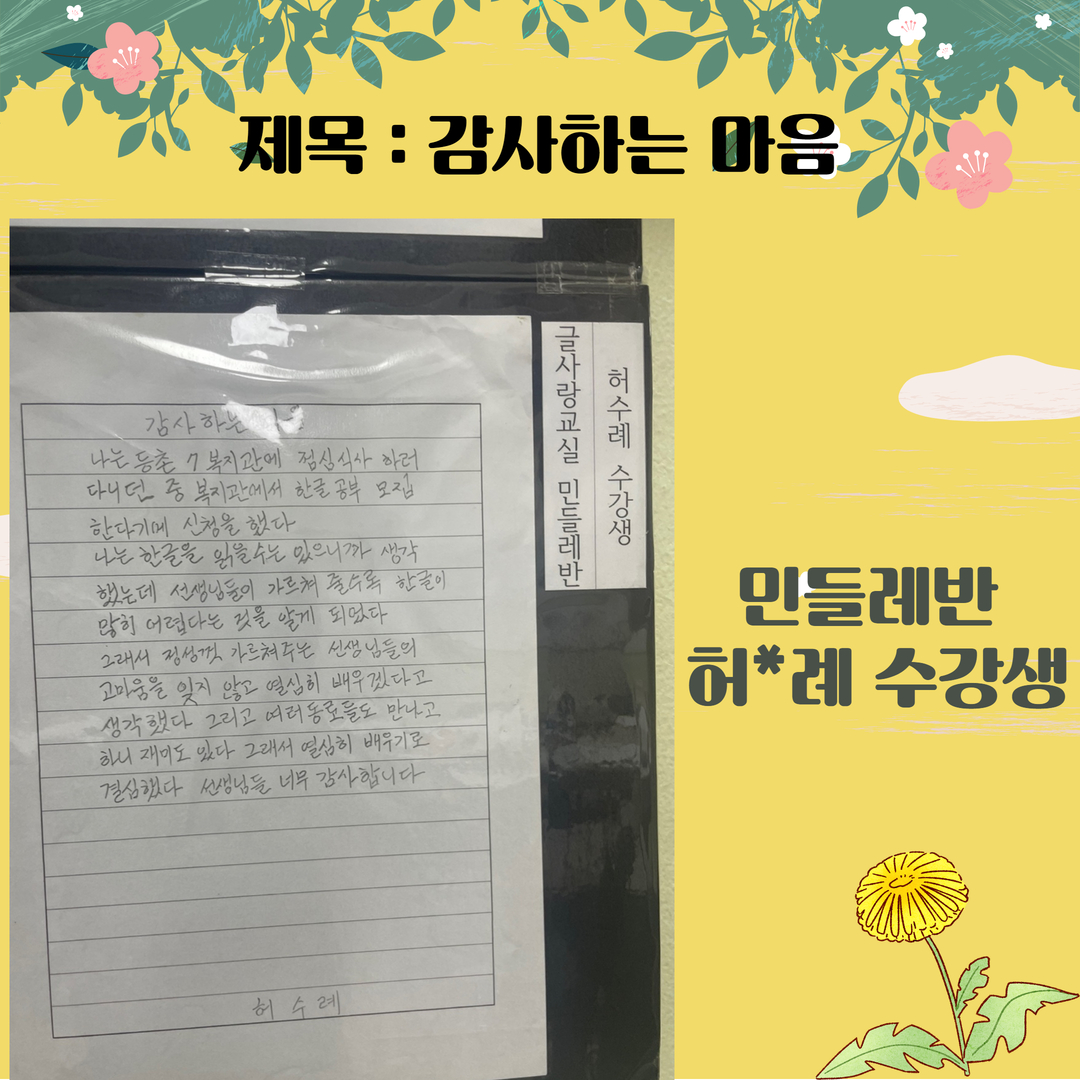 제목 : 감사하는 마음
감사하는
나는 등촌 7 복지관에 점심식사 하러
다니던 중 복지관에서 한글공부 모집
한다기에 신청을 했다
나는 한글을 읽을수는 있으니까 생각
했는데 선생님들이 가르쳐 줄수록 한글이
많히 어렵다는 것을 알게 되었다
그래서 정성껏 가르쳐주는 선생님들의
고마움을 잊지 않고 열심히 배우겠다고
생각했다 그리고 여러동료들도 만나고
하니 재미도 있다 그래서 열심히 배우기로
결심했다 선생님들 너무 감사합니다
허 수 례
글사랑교실 민들레반
허수례 수강생
민들레반
허*례 수강생